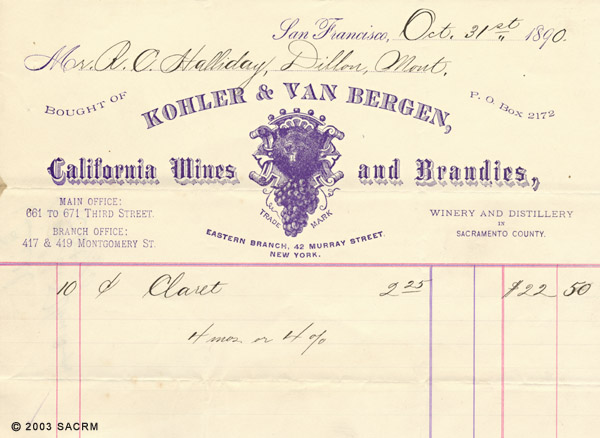 San Francisco, Oct. 31st 1890.
Mr. A. O. Halliday, Dillon, Mont.
BOUGHT OF
KOHLER & VAN BERGEN,
P. O. BOX 2172
California Wines and Brandies,
MAIN OFFICE:
661 TO 671 THIRD STREET.
BRANCH OFFICE:
417 & 419 MONTGOMERY ST.
TRADE MARK
EASTERN BRANCH, 42 MURRAY STREET.
NEW YORK.
WINERY AND DISTILLERY
IN
SACRAMENTO COUNTY.
10 ¢ Claret 2 25 $22 50
4 mos or 4 %
© 2003 SACRM